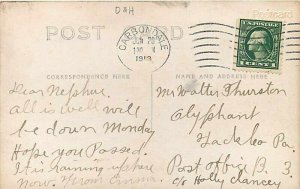 D&H
POST CARD
CARBONDALE
JUN 28
1 30 PM
1913
U.S. POSTAGE
1 CENT 1
CORRESPONDENCE HERE
NAME AND ADDRESS HERE
Dear Nephew
All is well will
be down Monday
Hope you Passed.
It is raining up here
Now. From
Mr Walter Thurston
Olyphant
Lacka Co Pa.
Post office B 3
c/o Holly Clancey